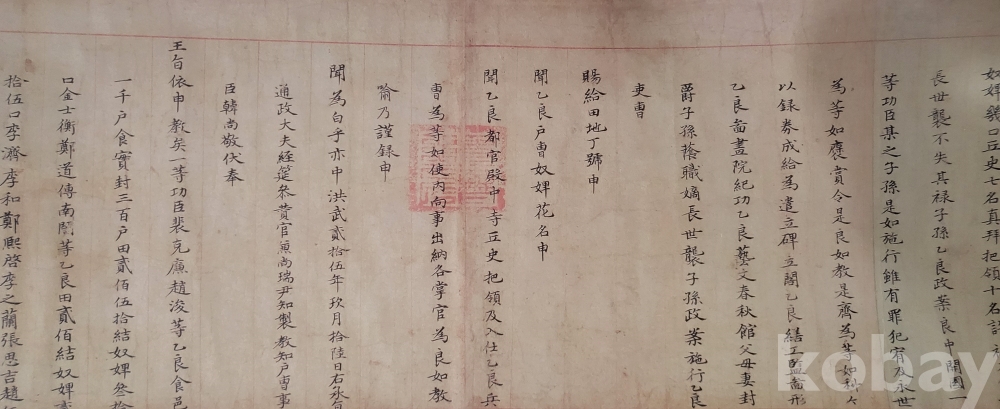 奴婢幾口丘史七名真拜把領十名許
長世襲不失其祿子孫乙良政案良中開國一
等功臣某之子孫是如施行雖有罪犯宥及永世
為等如褒賞令是良如教是齊為等如
以錄券成給為遣立碑立閣乙良繕工監畵形
乙良畵畫院紀功乙良藝文春秋館父母妻封
爵子孫蔭職嫡長世襲子孫政案施行乙良
吏曹
賜給田地丁號申
聞乙良戶曹奴婢花名申
聞乙良都官殿中寺丘史把領及入仕乙良兵
曹為等如使內向事出納各掌官為良如教
喻乃謹錄申
聞為白乎亦中洪武貳拾伍年玖月拾陸日右承旨
通政大夫經筵參贊官兼尚瑞尹知製教知戶曹事
臣韓尚敬伏奉
王旨依申教矣一等功臣裴克廉趙浚等乙良食邑
一千戶食實封三百戶田貳佰伍拾結奴婢叁拾
口金士衡鄭道傳南誾等乙良田貳佰結奴婢
拾伍口李濟李和鄭熙啓李之蘭張思吉趙
kobay